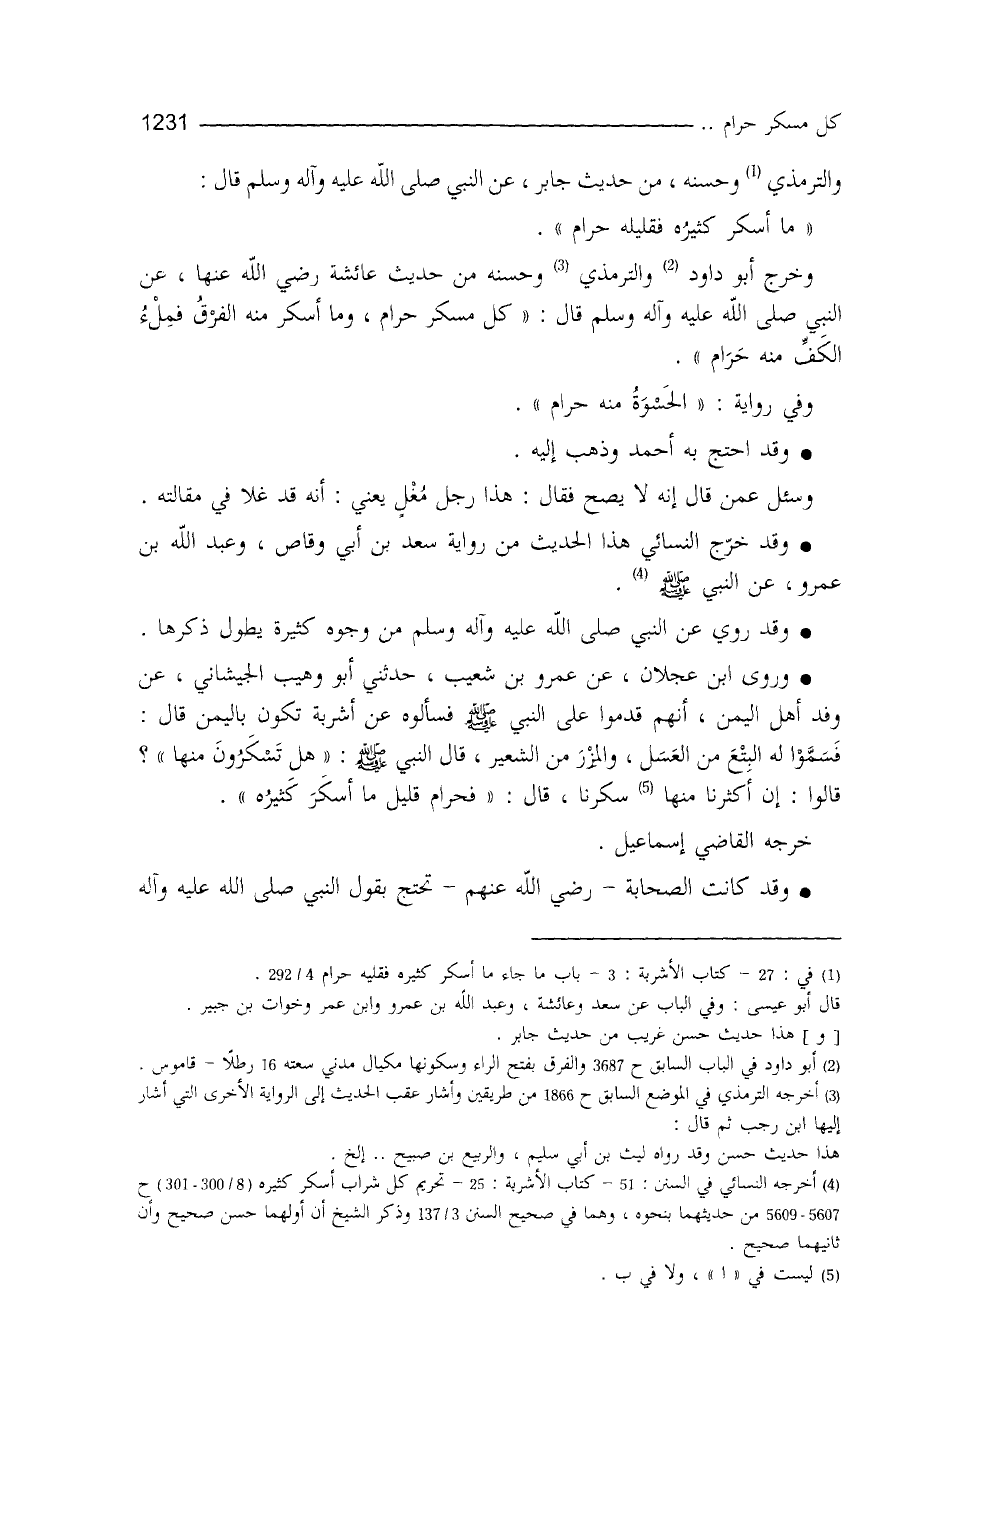 كل مسكر حرام .. 1231
والترمذي (1) وحسنه ، من حديث جابر ، عن النبي صلى اللّه عليه وآله وسلم قال :
« ما أسكر كثيرُه فقليله حرام » .
وخرج أبو داود (2) والترمذي (3) وحسنه من حديث عائشة رضي اللّه عنها ، عن
النبي صلى اللّه عليه وآله وسلم قال : « كل مسكر حرام ، وما أسكر منه الفرْقُ فمِلْءُ
الكَفِّ منه حَرَام » .
وفي رواية : « الحَسْوَةُ منه حرام » .
● وقد احتج به أحمد وذهب إليه .
وسئل عمن قال إنه لا يصح فقال : هذا رجل مُغْلٍ يعني : أنه قد غلا في مقالته .
● وقد خرّج النسائي هذا الحديث من رواية سعد بن أبي وقاص ، وعبد اللّه بن
عمرو ، عن النبي ﷺ (4) .
● وقد روي عن النبي صلى اللّه عليه وآله وسلم من وجوه كثيرة يطول ذكرها .
● وروى ابن عجلان ، عن عمرو بن شعيب ، حدثني أبو وهيب الجيشاني ، عن
وفد أهل اليمن ، أنهم قدموا على النبي ﷺ فسألوه عن أشربة تكون باليمن قال :
فَسَمَّوْا له البِتْعَ من العَسَل ، والمِزْرَ من الشعير ، قال النبي ﷺ : « هل تَسْكَرُونَ منها » ؟
قالوا : إن أكثرنا منها (5) سكرنا ، قال : « فحرام قليل ما أسكَرَ كَثيرُه » .
خرجه القاضي إسماعيل .
● وقد كانت الصحابة – رضي اللّه عنهم – تحتج بقول النبي صلى الله عليه وآله
(1) في : 27 – كتاب الأشربة : 3 – باب ما جاء ما أسكر كثيره فقليه حرام 4 / 292 .
قال أبو عيسى : وفي الباب عن سعد وعائشة ، وعبد اللّه بن عمرو وابن عمر وخوات بن جبير .
[ و ] هذا حديث حسن غريب من حديث جابر .
(2) أبو داود في الباب السابق ح 3687 والفرق بفتح الراء وسكونها مكيال مدني سعته 16 رطلًا – قاموس .
(3) أخرجه الترمذي في الموضع السابق ح 1866 من طريقين وأشار عقب الحديث إلى الرواية الأخرى التي أشار
إليها ابن رجب ثم قال :
هذا حديث حسن وقد رواه ليث بن أبي سليم ، والربيع بن صبيح .. إلخ .
(4) أخرجه النسائي في السنن : 51 – كتاب الأشربة : 25 – تحريم كل شراب أسكر كثيره ( 8 / 300 - 301 ) ح
5607 - 5609 من حديثهما بنحوه ، وهما في صحيح السنن 3 / 137 وذكر الشيخ أن أولهما حسن صحيح وأن
ثانيهما صحيح .
(5) ليست في « ا » ، ولا في ب .